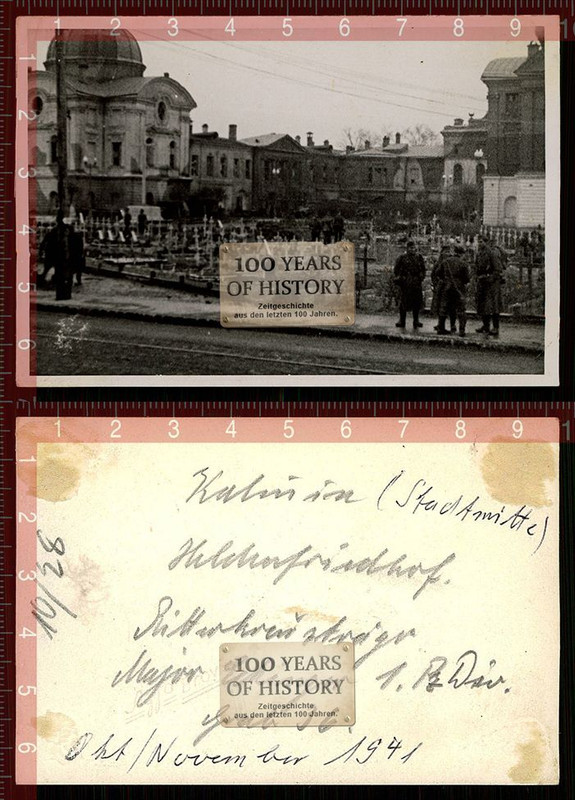 1 2 3 4 5 6 7 8 9 10
1
2
3
4
5
6
100 YEARS
OF HISTORY
Zeitgeschichte
aus den letzten 100 Jahren.
1 2 3 4 5 6 7 8 9
1
2
3
4
5
6
10/38
Kalinin (Stadtmitte)
Heldenfriedhof.
Ritterkreuzträger
Major 1. Pz Div.
100 YEARS
OF HISTORY
Zeitgeschichte
aus den letzten 100 Jahren.
Okt/November 1941